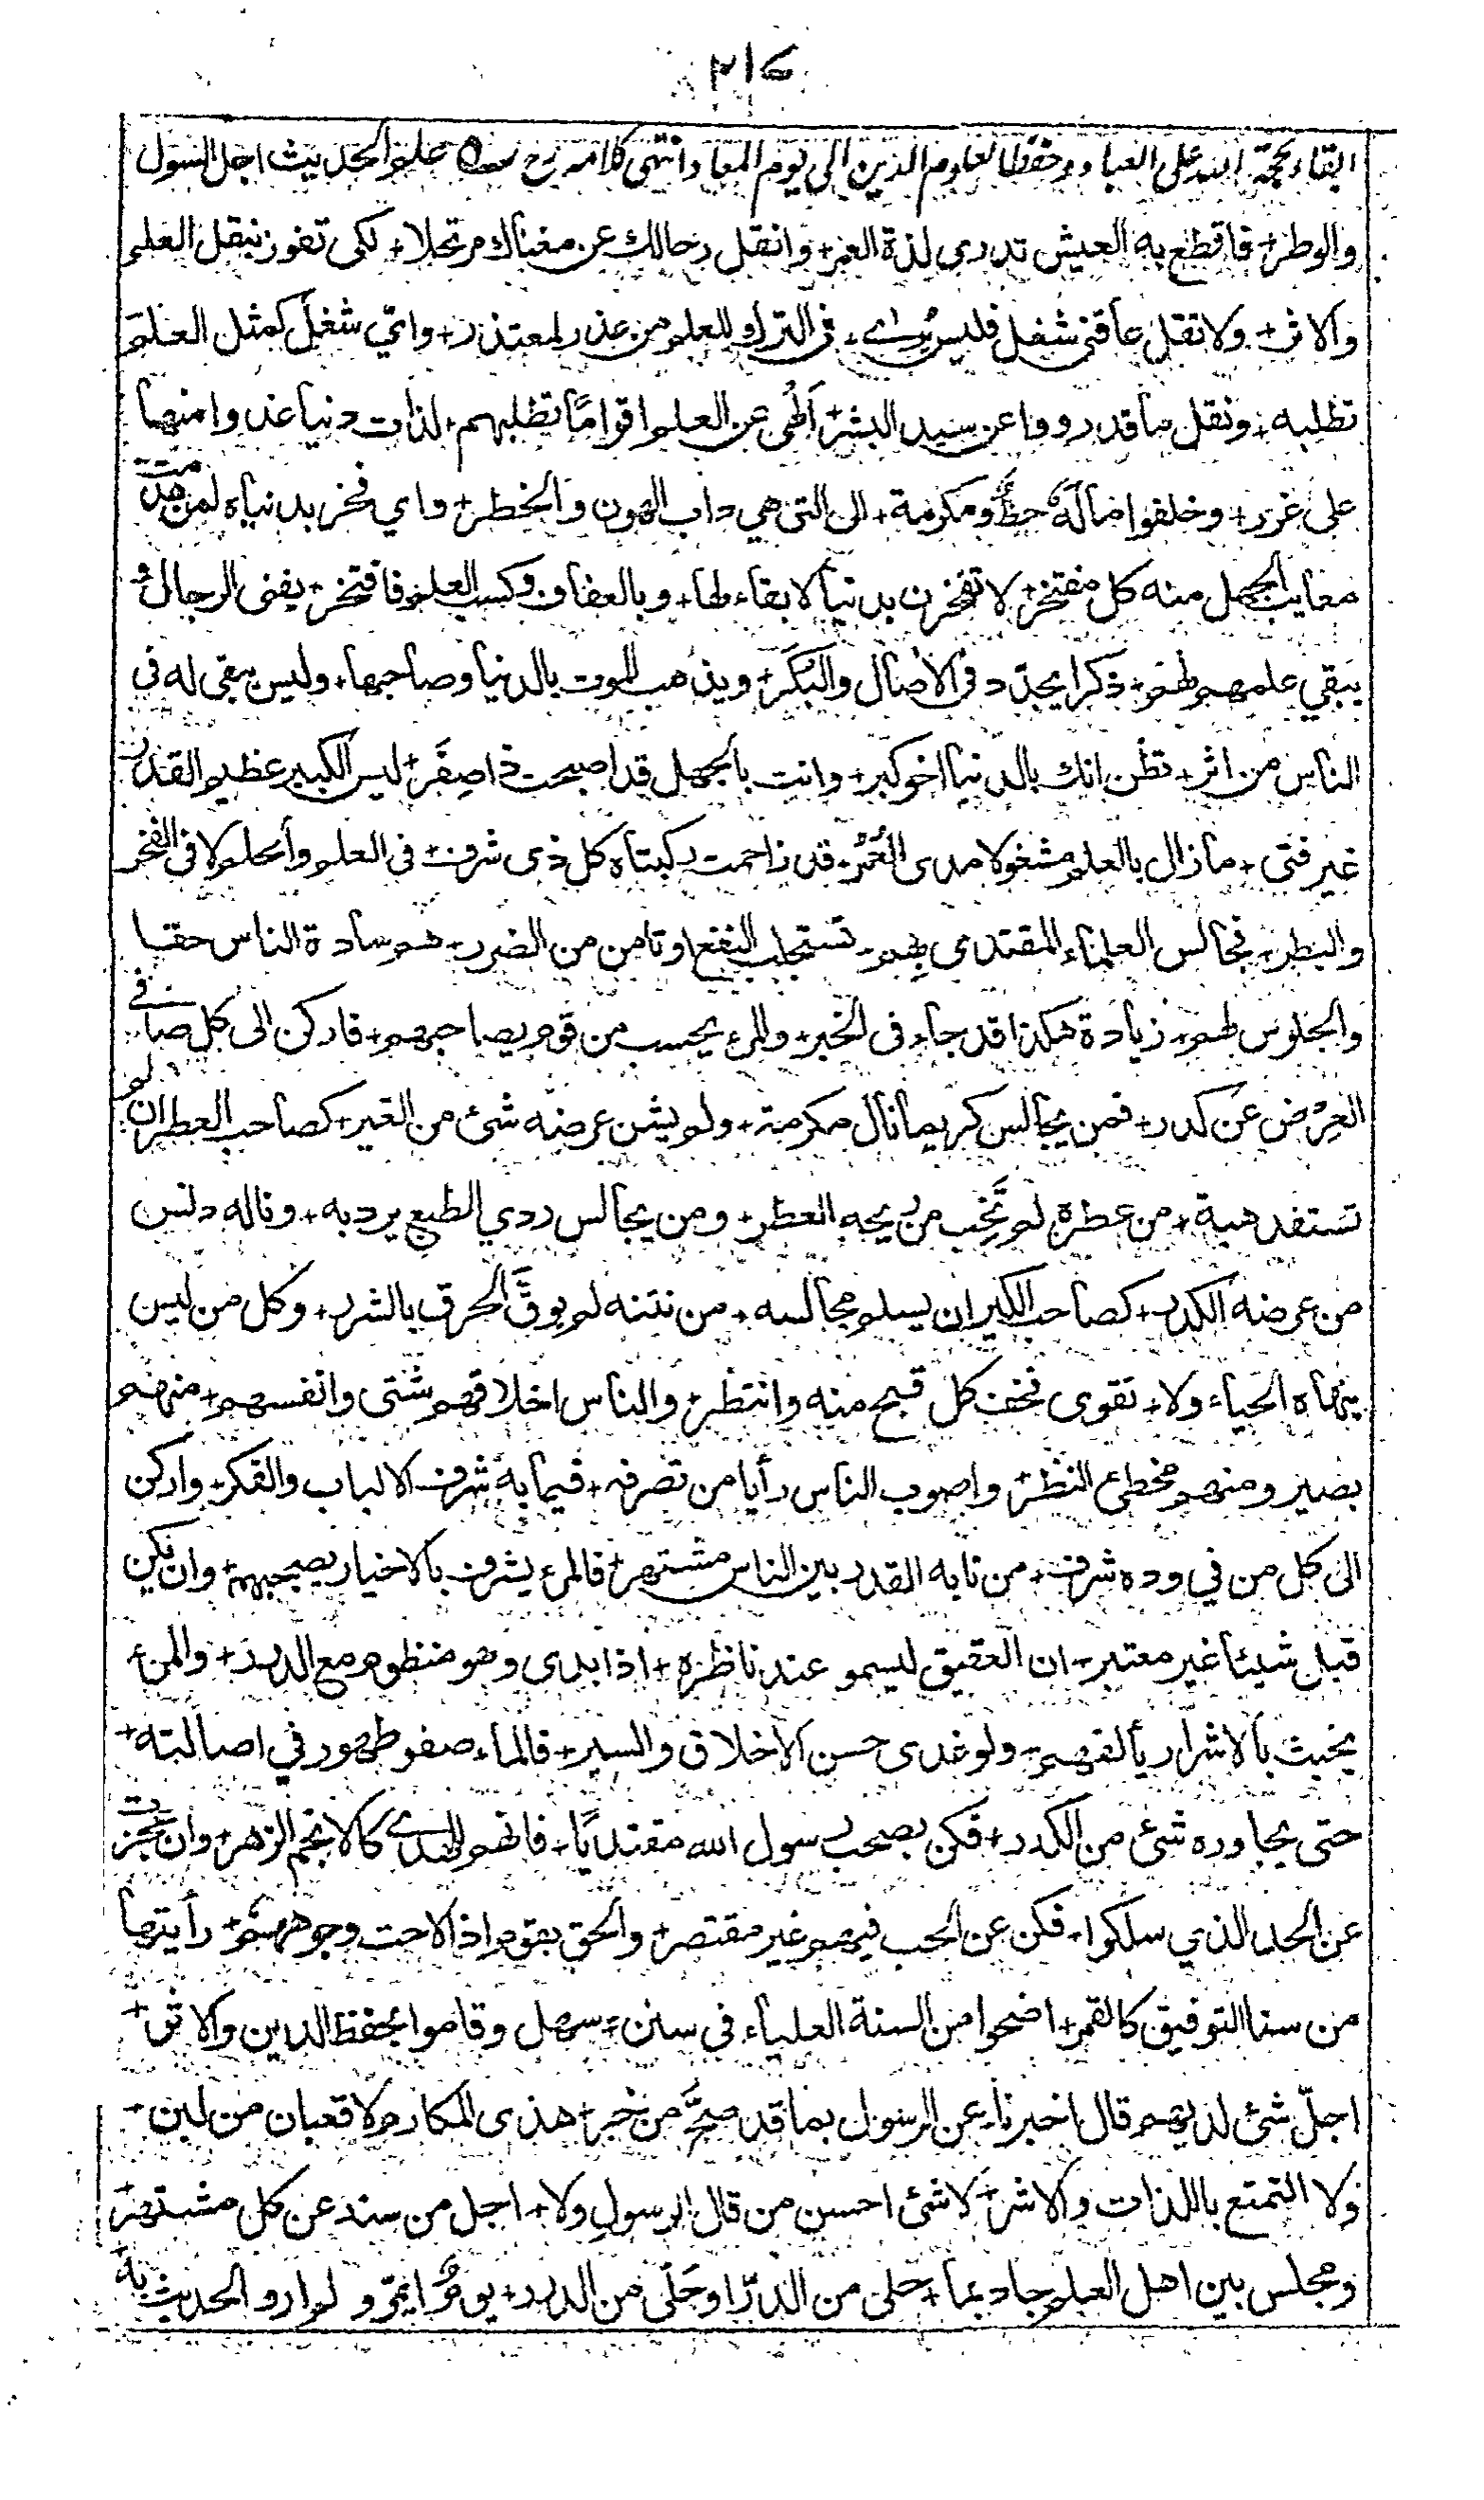 ٢١٧
البقاء لحجة الله على العباد وحفظا لعلوم الدين الى يوم المعاد انتهى كلامه رح علم الحديث اجل السول
والوطر+ فاقطع به العيش تدري لذة العمر+ وانقل رحالك عن مغناك مرتحلا+ لكي تفوز بنقل العلم
والاثر+ ولا تقل عاقني شغل فليس يرى+ في الترك للعلم من عذر لمعتذر+ واي شغل كمثل العلم
تطلبه+ ونقل ما قد رووا عن سيد البشر+ الهى عن العلم اقواما تطلبهم+ لذات دنيا غدوا منها
على غرر+ وخلفوا ما له حظ ومكرمة+ الى التي هي داب الهون والخطر+ واي فخر بدنياه لمن هدمت
معايب الجهل منه كل مفتخر+ لا تفخرن بدنيا لا بقاء لها+ وبالعفاف وكسب العلم فافتخر+ يفنى الرجال و
يبقي علمهم لهم+ ذكرا يجدد في الآصال والبكر+ ويذهب الموت بالدنيا وصاحبها+ وليس يبقى له في
الناس من اثر+ تظن انك بالدنيا اخو كبر+ وانت بالجهل قد اصبحت ذا صغر+ ليس الكبير عظيم القدر
غير فتى+ ما زال بالعلم مشغولا مدى العمر+ قد زاحمت ركبتاه كل ذي شرف+ في العلم والحلم لا في الفخر
والبطر+ فجالس العلماء المقتدى بهم+ تستجلب النفع او تامن من الضرر+ هم سادة الناس حقا
والجلوس لهم+ زيادة هكذا قد جاء في الخبر+ والمرء يحسب من قوم يصاحبهم+ فاركن الى كل صافي
العرض عن كدر+ فمن يجالس كريما نال مكرمة+ ولم يشن عرضه شئ من الغير+ كصاحب العطر ان لم
تستفد هبة+ من عطره لم تخب من ريحه العطر+ ومن يجالس ردي الطبع يرد به+ وناله دنس
من عرضه الكدر+ كصاحب الكير ان يسلم مجالسه+ من نتنه لم يوق الحرق بالشرر+ وكل من ليس
ينهاه الحياء ولا+ تقوى فخف كل قبيح منه وانتظر+ والناس اخلاقهم شتى وانفسهم+ منهم
بصير ومنهم مخطئ النظر+ واصوب الناس رأيا من تصرفه+ فيما به شرف الالباب والفكر+ واركن
الى كل من في وده شرف+ من نابه القدر بين الناس مشتهر+ فالمرء يشرف بالاخيار يصحبهم+ وان يكن
قبل شيئا غير معتبر+ ان العقيق ليسمو عند ناظره+ اذا بدى وهو منظوم مع الدرر+ والمرء
يخبث بالاشرار يألفهم+ ولو غدى حسن الاخلاق والسير+ فالماء صفو طهور في اصالته+
حتى يجاوره شئ من الكدر+ فكن بصحب رسول الله مقتديا+ فانهم للهدى كالانجم الزهر+ وان عجزت
عن الحد الذي سلكوا+ فكن عن الحب فيهم غير مقتصر+ والحق بقوم اذا لاحت وجوههم+ رأيتها
من سنا التوفيق كالقمر+ اضحوا من السنة العلياء في سنن+ سهل وقاموا بحفظ الدين والاثر+
اجل شئ لديهم قال اخبرنا+ عن الرسول بما قد صح من خبر+ هذي المكارم لا قعبان من لبن+
ولا التمتع باللذات والاشر+ لا شئ احسن من قال الرسول ولا+ اجل من سند عن كل مشتهر+
ومجلس بين اهل العلم جاد بما+ حلى من الدر او حلى من الدرر+ يوم يمر ولم ارو الحديث به+